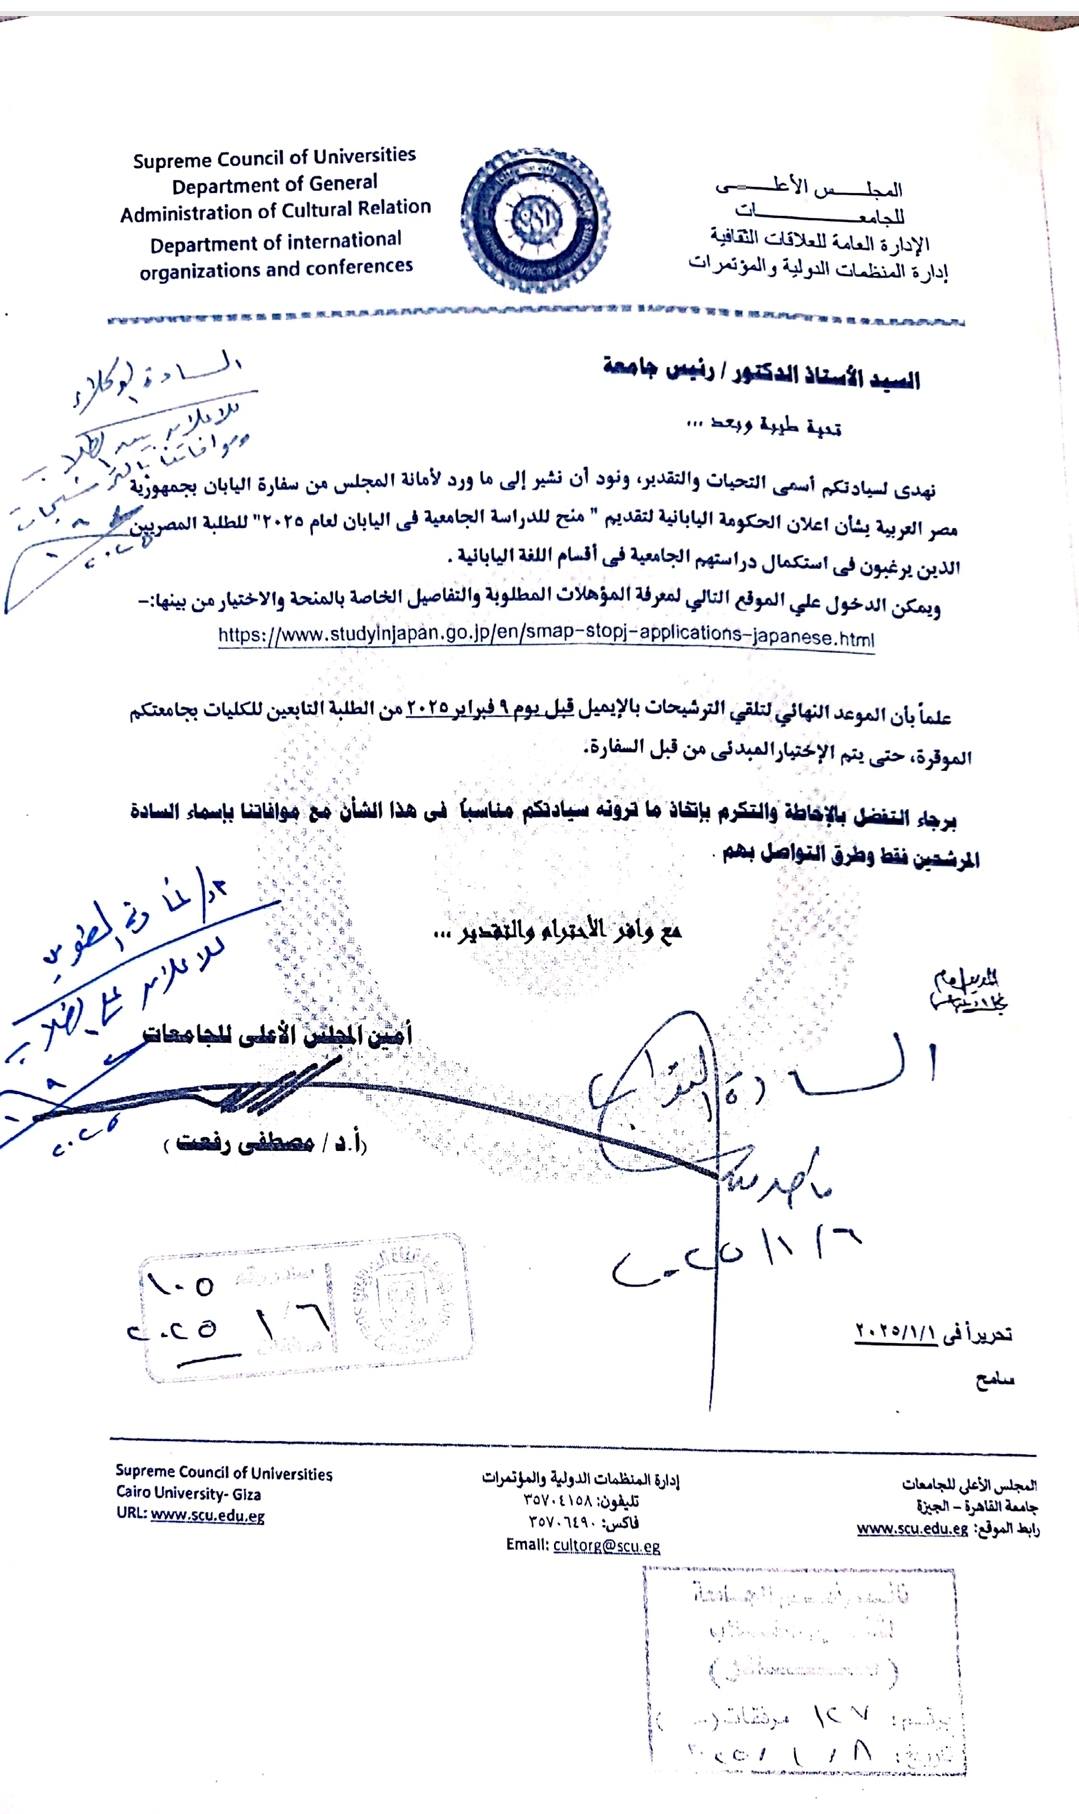 Supreme Council of Universities
Department of General
Administration of Cultural Relation
Department of international
organizations and conferences
المجلس الأعلى
للجامعات
الإدارة العامة للعلاقات الثقافية
إدارة المنظمات الدولية والمؤتمرات
SUPREME COUNCIL OF UNIVERSITIES
السادة الوكلاء
للإعلان بين الطلاب
وموافاتنا بالترشيحات
٢٠٢٥
السيد الأستاذ الدكتور / رئيس جامعة
تحية طيبة وبعد ...
نهدى لسيادتكم أسمى التحيات والتقدير، ونود أن نشير إلى ما ورد لأمانة المجلس من سفارة اليابان بجمهورية
مصر العربية بشأن اعلان الحكومة اليابانية لتقديم " منح للدراسة الجامعية فى اليابان لعام ٢٠٢٥" للطلبة المصريين
الذين يرغبون فى استكمال دراستهم الجامعية فى أقسام اللغة اليابانية .
ويمكن الدخول علي الموقع التالي لمعرفة المؤهلات المطلوبة والتفاصيل الخاصة بالمنحة والاختيار من بينها:–
https://www.studyinjapan.go.jp/en/smap-stopj-applications-japanese.html
علماً بأن الموعد النهائي لتلقي الترشيحات بالإيميل قبل يوم ٩ فبراير ٢٠٢٥ من الطلبة التابعين للكليات بجامعتكم
الموقرة، حتى يتم الإختيار المبدئى من قبل السفارة.
برجاء التفضل بالإحاطة والتكرم بإتخاذ ما ترونه سيادتكم مناسباً فى هذا الشأن مع موافاتنا بإسماء السادة
المرشحين فقط وطرق التواصل بهم .
مع وافر الأحترام والتقدير ...
للإعلان على الطلاب
٢٠٢٥
أمين المجلس الأعلى للجامعات
(أ.د / مصطفى رفعت )
السادة النواب
٢٠٢٥/١/٦
١٠٥
١/٦
٢٠٢٥
تحريراً فى ٢٠٢٥/١/١
سامح
Supreme Council of Universities
Cairo University- Giza
URL: www.scu.edu.eg
إدارة المنظمات الدولية والمؤتمرات
تليفون: ٣٥٧٠٤١٥٨
فاكس: ٣٥٧٠٦٤٩٠
Email: cultorg@scu.eg
المجلس الأعلى للجامعات
جامعة القاهرة – الجيزة
رابط الموقع: www.scu.edu.eg
برقم: ١٢٧ مرفقات (–)
تاريخ: ٨ / ١ / ٢٠٢٥